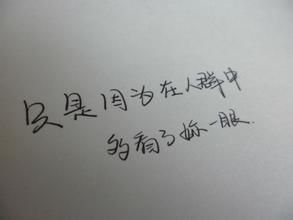 只是因为在人群中
多看了你一眼.